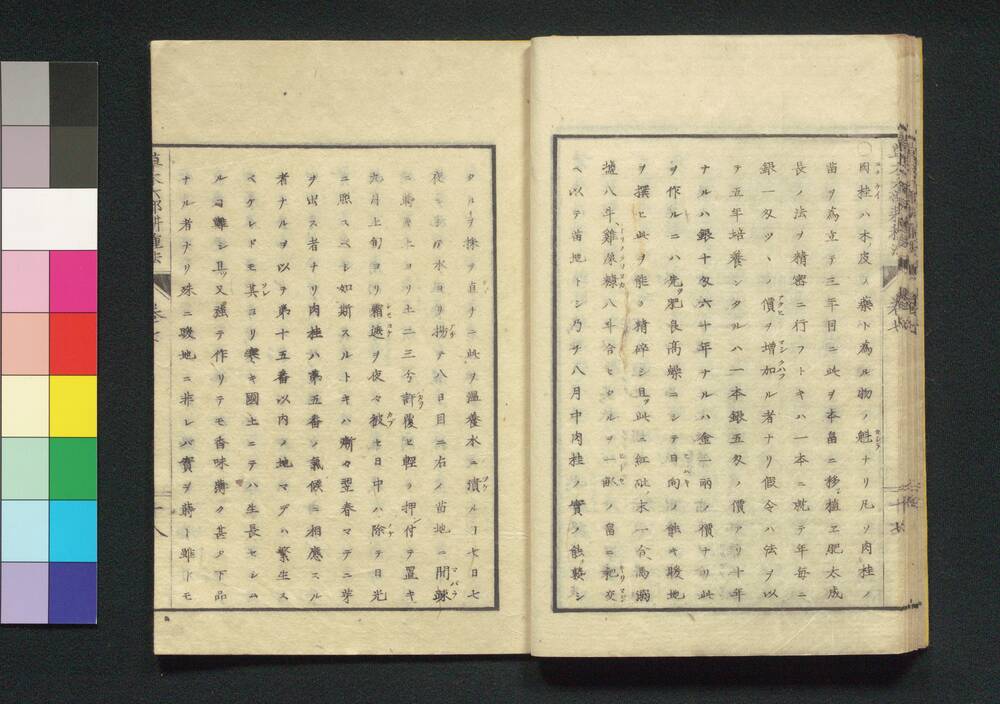 ○肉桂ハ木皮ノ藥ト爲ル物ノ魁ナリ凡ソ肉桂ノ
苗ヲ爲立テ三年目ニ此ヲ本畠ニ移植ヱ肥太成
長ノ法ヲ精密ニ行フトキハ一本ニ就テ年每ニ
銀一匁ツヽノ價ヲ增加ル者ナリ假令ハ法ヲ以
テ五年培養シタルハ一本銀五匁ノ價アリ十年
ナルハ銀十匁六十年ナルハ金一兩ノ價ナリ此
ヲ作ルニハ先肥良高燥ニシテ日向ノ能キ暖地
ヲ撰ヒ此ヲ能ク精碎シ且此ニ紅砒末一合馬溺
壚八斗雞屎糠八斗合セタルヲ一畝ノ畠ニ耙交
ヘ以テ苗地トシ乃チ八月中肉桂ノ實ノ能熟シ
タルヲ採テ直ナニ此ヲ溫養水ニ漬ル丁七日七
夜ニシテ水ヨリ拗テ八日目ニ右ノ苗地ニ間疎
ニ蒔キ上ヨリ土二三分許覆ヒ輕ク押付テ置キ
九月上旬ヨリ霜遮ヲ夜々被セ日中ハ除テ日光
ニ照スベシ如斯スルトキハ漸々翌春マデニ芽
ヲ出ス者ナリ肉桂ハ第五番ノ氣候ニ相應スル
者ナルヲ以テ第十五番以内ノ地マデハ繁生ス
ベケレドモ其ヨリ寒キ國土ニテハ生長セシム
ル丁難シ且又强テ作リテモ香味薄ク甚タ下品
ナル者ナリ殊ニ暖地ニ非レバ實ヲ蒔丁雖トモ
草木六部耕種法